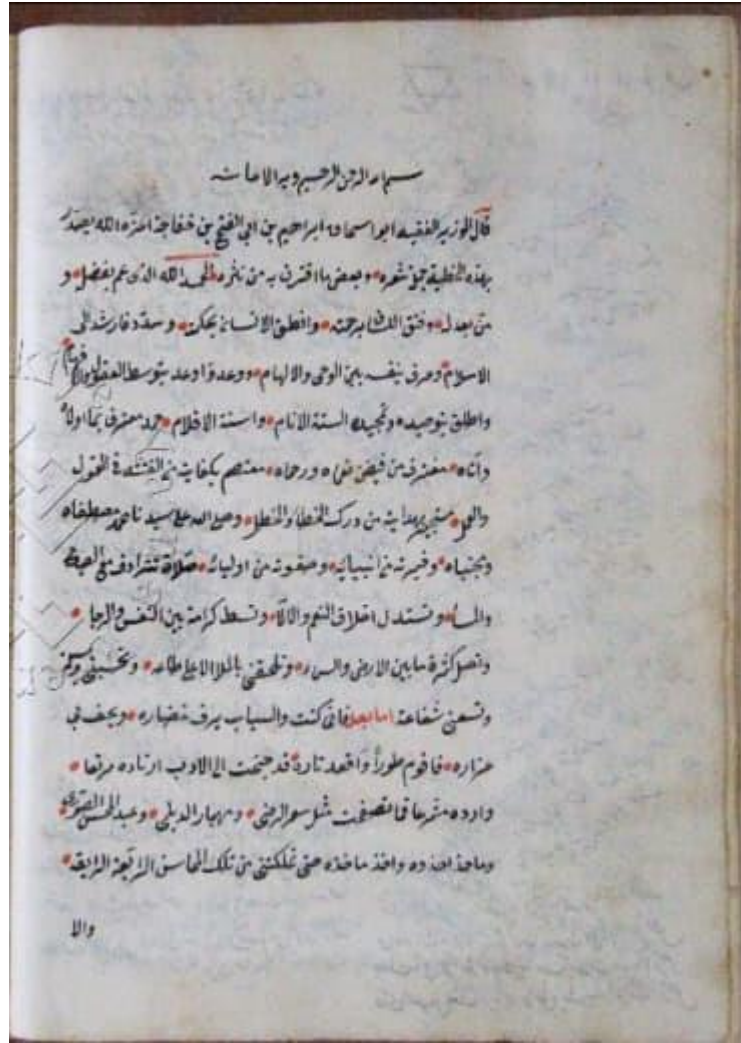 بسم الله الرحمن الرحيم وبه الاعانة
قال الوزير الفقيه ابو اسحاق ابراهيم بن ابي الفتح بن خفاجة اعزه الله يصدر
بهذه الخطبة جمع شعره وبعض ما اقترن به من نثره الحمد لله الذي عم بفضل و
من بعدل وفتق اللسا برحمته وانطق الانسان بحكمته وسدد فارشد الى
الاسلام وصرف بين الوحي والالهام ووعد واوعد بتوسط العقول والافهام
واطلق بتوحيده وتمجيده السنة الانام واسنة الاقلام حمد معترف بما اولاه
واتاه مغترف من فيض نعماه ورحماه معتصم بكفايته من الفتنة في القول
والعمل مستجير بهدايته من درك الخطا والخطل وصلى الله على سيدنا محمد مصطفاه
ومجتباه وخيرته من انبيائه وصفوته من اوليائه صلاة تترادف مع الصباح
والمسا وتستدل اخلاق النعم والالا وتسط كرامة بين النفس والرجا
وتصل كثرة ما بين الارض والسما وتلحقني بالملا الاعلى
وتسعني شفاعة اما بعد فاني كنت والشباب يرف غضارة ويخف بي
عراره فاقوم طورا واقعد تارة قد جنحت الى الادب ارتاده مرتعا
وارده مشرعا فما تصفحت مثل شعر الرضي ومهيار الديلمي وعبد المحسن الصوري
وما حذا حذوه واخذ ماخذه حتى تملكتني من تلك المحاسن الرائعة الرايقة
والا